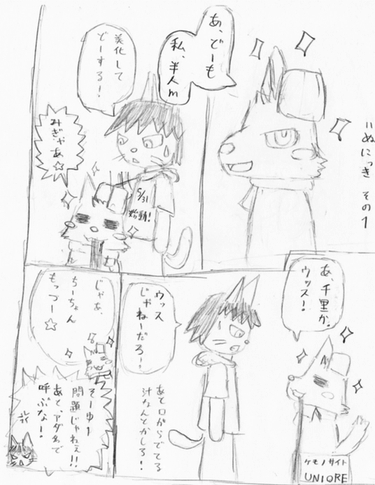 いぬにっき その1
あ、どーも
私、半人m
美化して
どーする！！
5/31
始動！
みぎゃあ☆
あ、千里か。
ウッス！
ウッス
じゃねーだろ！！
あと口からでてる
汁なんとかしろ！！
ケモノサイト
UNIORE
じゃあ、
ちーちゃん
もっつー☆
そーゆー
問題じゃねぇ！！
あと、アダ名で
呼ぶな！！